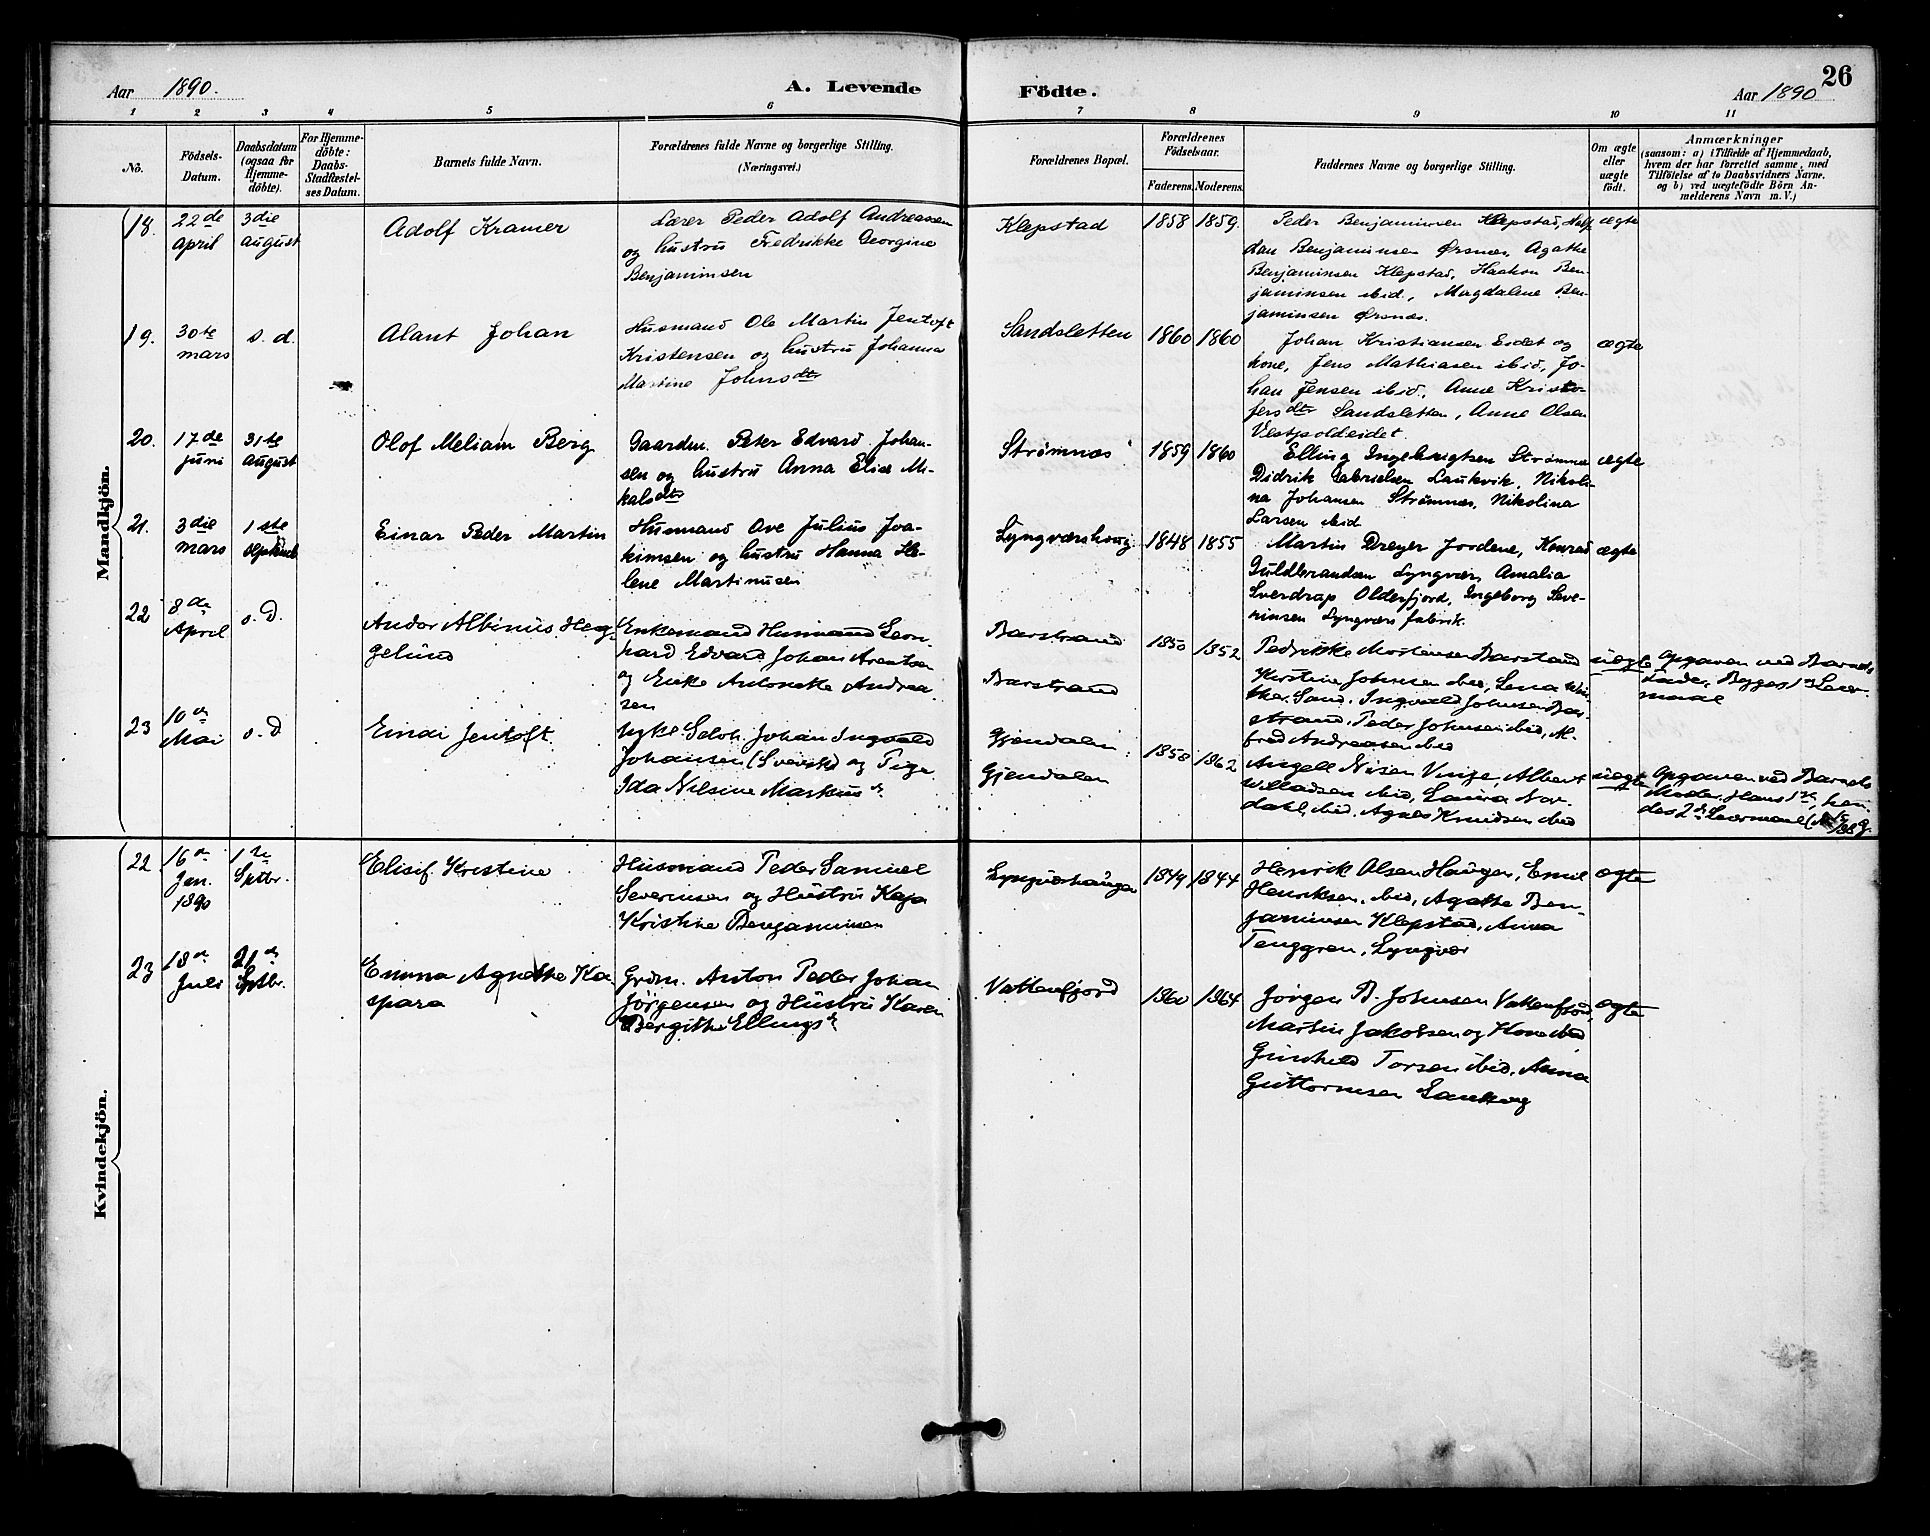 26
Aar 1890.
A. Levende
Födte.
Aar 1890
1 2 3 4 5 6 7 8 9 10 11
No.
Födsels-
Datum.
Daabsdatum
(ogsaa for
Hjemme-
döbte).
For Hjemme-
döbte:
Daabs-
Stadfæstel-
ses Datum.
Barnets fulde Navn.
Forældrenes fulde Navne og borgerlige Stilling.
(Næringsvei.)
Forældrenes Bopæl.
Forældrenes
Födselsaar.
Faderens. Moderens.
Faddernes Navne og borgerlige Stilling.
Om ægte
eller
uægte
födt.
Anmærkninger
(saasom: a) i Tilfælde af Hjemmedaab,
hvem der har forrettet samme, med
Tilföielse af to Daabsvidners Navne.
og b) ved uægtefödte Börn An-
melderens Navn m. V.)
Mandkjön.
18.
22de
april
3die
august
Adolf Kramer
Lærer Peder Adolf Andreassen
og hustru Fredrikke Georgine
Benjaminsen
Klepstad
1858 1859.
Peder Benjaminsen Klepstad, Half
dan Benjaminsen Ørsnæs, Agathe
Benjaminsen Klepstad, Haakon Ben-
jaminsen ibid., Magdalene Ben-
jaminsen Ørsnæs.
ægte
19.
30te
mars
s. d.
Alant Johan
Husmand Ole Martin Jentoft
Kristensen og hustru Johanna
Martine Johnsdtr
Sandsletten
1860 1860
Johan Kristiansen Eidet og
kone, Jens Mathiasen ibid, Jo-
han Jensen ibid., Anne Kristo-
fersdtr Sandsletten, Anne Olsen
Vestpoldeidet.
ægte
20.
17de
juni
31te
august
Olof Meliam Berg
Gaardm. Peter Edvard Johan-
sen og hustru Anna Elise Mi-
kalsdtr
Strømnæs
1859 1860
Elling Ingebrigtsen Strømnæs
Didrik Gabrielsen Laukvik, Nikoli-
na Johansen Strømnæs, Nikolina
Larsen ibid
ægte
21.
3die
mars
1ste
Einar Peder Martin
Husmand Ove Julius Joa-
kimsen og hustru Hanna He-
lene Martinusen
Lyngværshaug
1848 1855
Martin Dreyer Jordene, Konrad
Guldbrandsen Lyngvær, Amalia
Sverdrap Olderfjord, Ingeborg Seve-
rinsen Lyngvær fabrik.
ægte
22
8de
April
s. D.
Andor Albinus Heg-
gelund
Enkemand Husmand Leon-
hard Edvard Johan Arentsen
og Enke Antonette Andrea-
sen
Barstrand
Barstrand
1850 1852
Fedrikke Mortensen Barstand
Kerstine Johnsen ibid, Lena
Sand, Ingvald Johnsen Bar-
strand, Peder Johnsen ibid, Al-
fred Andreasen ibid
uægte
Opgaven ved Barnets
Fader, Begges 1ste Leier-
maal
23
10de
Mai
s. D
Einar Jentoft.
Ugkl Selvh. Johan Ingvald
Johansen (Svensk) og Pige
Ida Nilsine Markusdr
Gjendalen
Gjendalen
1858 1862
Angell Nilsen Vinje, Albert
Willadsen ibid, Laura Nor-
dahl, ibid, Agnes Knudsen ibid
uægte
Opgaven ved Barnets
Moder. Hans 1ste, hen-
des 2det Leiermaal
Kvindekjön.
22
16de
Jan.
1890
1ste
Sptbr.
Elisif Kristine
Husmand Peder Samuel
Severinsen og Hustru Kaja
Kristine Benjaminsen
Lyngværhaugen
1849 1844
Henrik Olsen Haugen, Emil
Henriksen, ibid, Agathe Ben-
jaminsen Klepstad, Anna
Tenggren, Lyngvær
ægte
23
18de
Juli
21de
Sptbr.
Emma Agnethe Ka
spara
Grdm. Anton Peder Johan
Jørgensen og Hustru Karen
Bergithe Ellingsdr
Vattenfjord
1860 1864
Jørgen B. Johnsen Vattenfjord,
Martin Jakobsen og Kone ibid
Gunhild Torsen ibid, Anna
Guttormsen
ægte